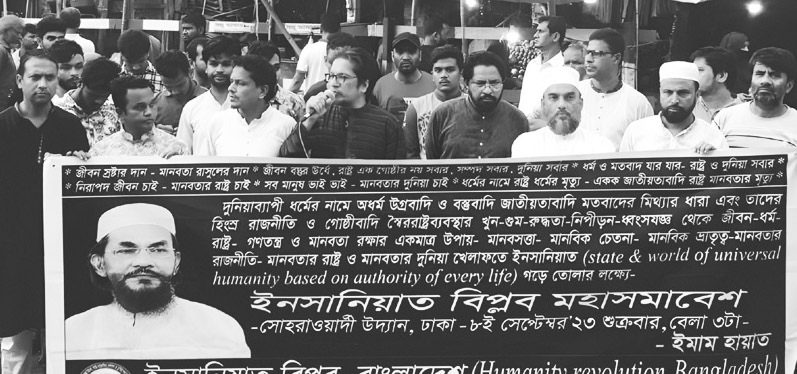 * জীবন স্রষ্টার দান - মানবতা রাসুলের দান * জীবন বস্তুর উর্ধে, রাষ্ট্র এক গোষ্ঠীর নয় সবার, সম্পদ সবার, দুনিয়া সবার * ধর্ম ও মতবাদ যার যার- রাষ্ট্র ও দুনিয়া সবার *
* নিরাপদ জীবন চাই - মানবতার রাষ্ট্র চাই * সব মানুষ ভাই ভাই - মানবতার দুনিয়া চাই * ধর্মের নামে রাষ্ট্র ধর্মের মৃত্যু - একক জাতীয়তাবাদি রাষ্ট্র মানবতার মৃত্যু *
দুনিয়াব্যাপী ধর্মের নামে অধর্ম উগ্রবাদি ও বস্তুবাদি জাতীয়তাবাদি মতবাদের মিথ্যার ধারা এবং তাদের
হিংস্র রাজনীতি ও গোষ্ঠীবাদি স্বৈররাষ্ট্রব্যবস্থার খুন-গুম-রুদ্ধতা-নিপীড়ন-ধ্বংসযজ্ঞ থেকে জীবন-ধর্ম-
রাষ্ট্র- গণতন্ত্র ও মানবতা রক্ষার একমাত্র উপায়- মানবসত্তা- মানবিক চেতনা- মানবিক ভ্রাতৃত্ব-মানবতার
রাজনীতি- মানবতার রাষ্ট্র ও মানবতার দুনিয়া খেলাফতে ইনসানিয়াত (state & world of universal
humanity based on authority of every life) গড়ে তোলার লক্ষ্যে-
ইনসানিয়াত বিপ্লব মহাসমাবেশ
-সোহরাওয়ার্দী উদ্যান, ঢাকা -৮ই সেপ্টেম্বর'২৩ শুক্রবার, বেলা ৩টা-
- ইমাম হায়াত
ইনসানিয়াত বিপ্লব, বাংলাদেশ (Humanity revolution, Bangladesh)